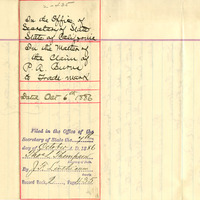 In the Office of
Secretary of State
State of California
In the Matter of
the Claim of
P. A. Burns
to Trade mark
Dated Oct 6th 1886
Filed in the Office of the
Secretary of State the 7th
day of October A.D. 1886
Thos L. Thompson
Secretary of State
By
Deputy
Record Book 2 Page